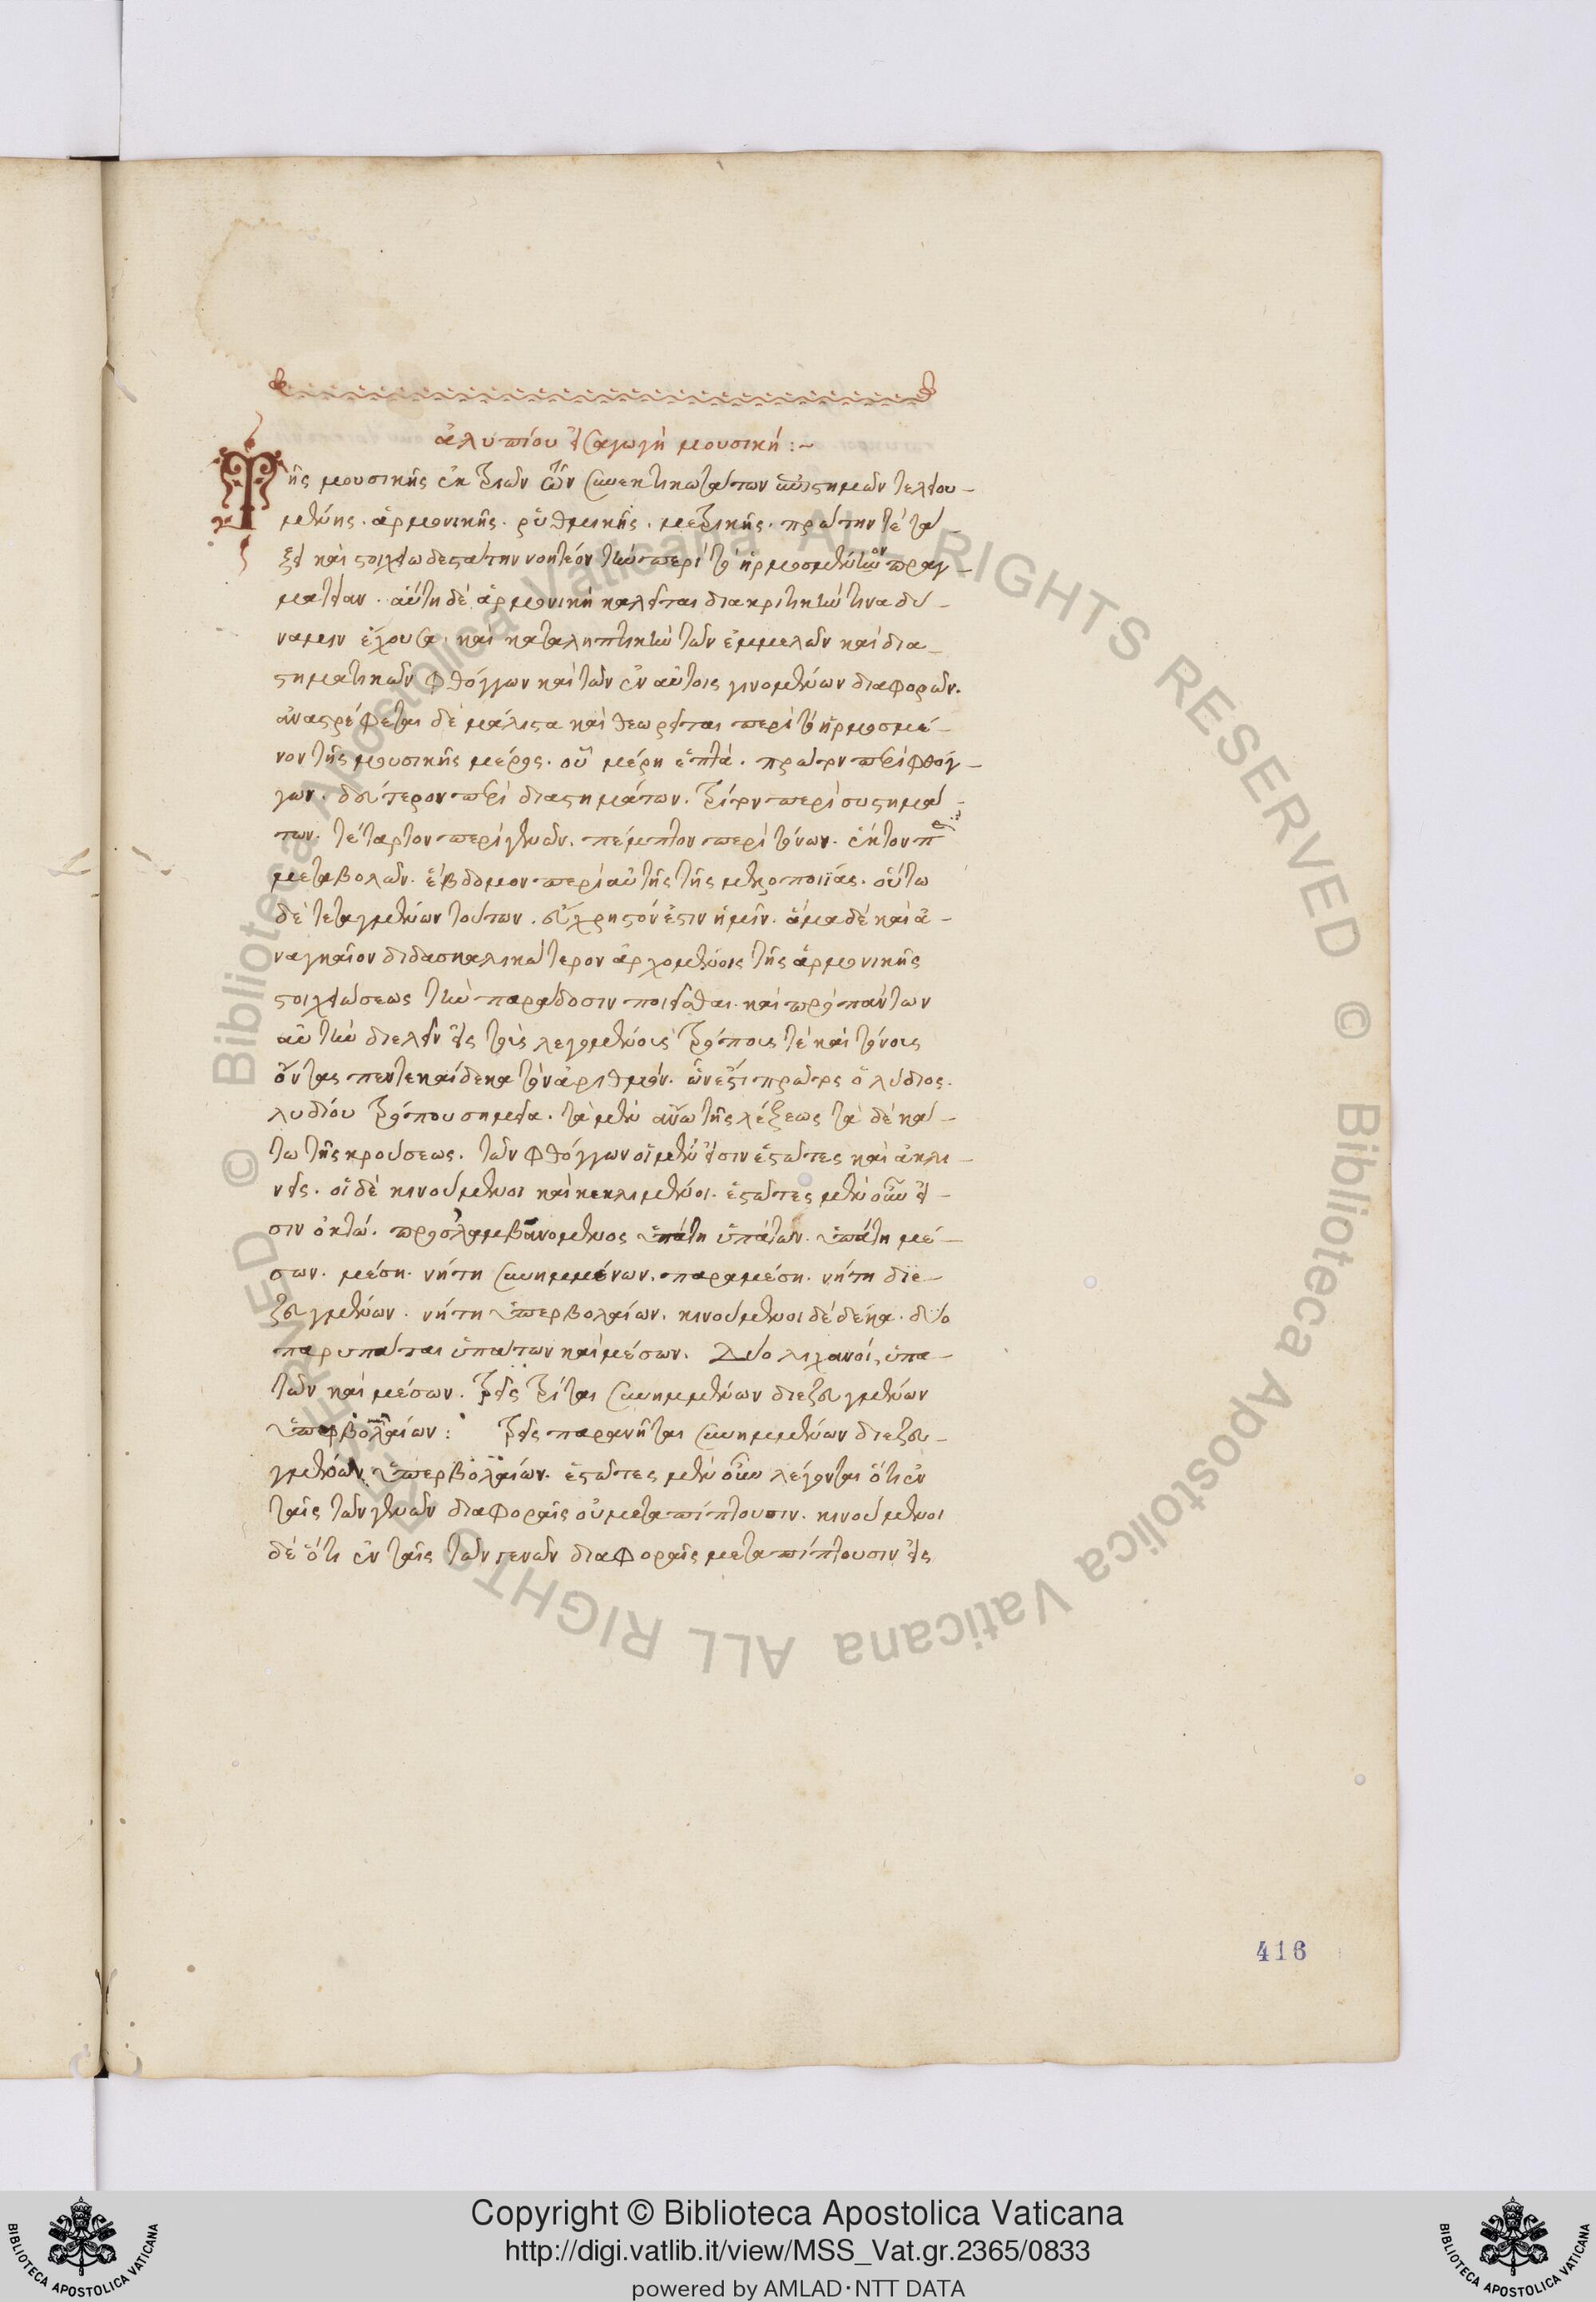 ἀλυπίου εἰσαγωγὴ μουσική :~
Τῆς μουσικῆς ἐκ τριῶν τῶν συνεκτικωτάτων ἐπιστημῶν τελειου-
μένης. ἁρμονικῆς. ῥυθμικῆς. μετρικῆς. πρώτην τὲ τά-
ξει καὶ στοιχειωδεστάτην νοητέον τὴν περὶ τὸ ἡρμοσμένον πραγ-
ματείαν. αὕτη δὲ ἁρμονικὴ καλεῖται διακριτικήν τινα δύ-
ναμιν ἔχουσα καὶ καταληπτικὴν τῶν ἐμμελῶν καὶ δια-
στηματικῶν φθόγγων καὶ τῶν ἐν αὐτοῖς γινομένων διαφορῶν.
ἀναστρέφεται δὲ μάλιστα καὶ θεωρεῖται περὶ τὸ ἡρμοσμέ-
νον τῆς μουσικῆς μέρος. οὗ μέρη ἑπτά. πρῶτον περὶ φθόγ-
γων. δεύτερον περὶ διαστημάτων. τρίτον περὶ συστημά-
των. τέταρτον περὶ γενῶν. πέμπτον περὶ τόνων. ἕκτον περὶ
μεταβολῶν. ἕβδομον περὶ αὐτῆς τῆς μελοποιΐας. οὕτω
δὲ τεταγμένων τούτων. εὔχρηστόν ἐστιν ἡμῖν. ἅμα δὲ καὶ ἀ-
ναγκαῖον διδασκαλικώτερον ἀρχομένοις τῆς ἁρμονικῆς
στοιχειώσεως τὴν παράδοσιν ποιεῖσθαι. καὶ πρὸ πάντων
αὐτὴν διελεῖν εἰς τοὺς λεγομένους τρόπους τὲ καὶ τόνους
ὄντας πεντεκαίδεκα τὸν ἀριθμόν. ὧν ἐστι πρῶτος ὁ λύδιος.
λυδίου τρόπου σημεῖα. τὰ μὲν ἄνω τῆς λέξεως τὰ δὲ κά-
τω τῆς κρούσεως. τῶν φθόγγων οἱ μὲν εἰσιν ἑστῶτες καὶ ἀκλι-
νεῖς. οἱ δὲ κινούμενοι καὶ κεκλιμένοι. ἑστῶτες μὲν οὖν εἰ-
σιν ὀκτώ. προσλαμβανόμενος ὑπάτη ὑπάτων. ὑπάτη μέ-
σων. μέση. νήτη συνημμένων. παραμέση. νήτη διε-
ζευγμένων. νήτη ὑπερβολαίων. κινούμενοι δὲ δέκα. δύο
παρυπάται ὑπάτων καὶ μέσων. Δύο λιχανοί, ὑπα-
τῶν καὶ μέσων. τρεῖς τρίται συνημμένων διεζευγμένων
ὑπερβολαίων : τρεῖς παρανῆται συνημμένων διεζευ-
γμένων ὑπερβολαίων. ἑστῶτες μὲν οὖν λέγονται ὅτι ἐν
ταῖς τῶν γενῶν διαφοραῖς οὐ μεταπίπτουσιν. κινούμενοι
δὲ ὅτι ἐν ταῖς τῶν γενῶν διαφοραῖς μεταπίπτουσιν εἰς
416
© Biblioteca Apostolica Vaticana ALL RIGHTS RESERVED © Biblioteca Apostolica Vaticana ALL RIGHTS RESERVED
Copyright © Biblioteca Apostolica Vaticana
http://digi.vatlib.it/view/MSS_Vat.gr.2365/0833
powered by AMLAD·NTT DATA
BIBLIOTECA APOSTOLICA VATICANA
BIBLIOTECA APOSTOLICA VATICANA